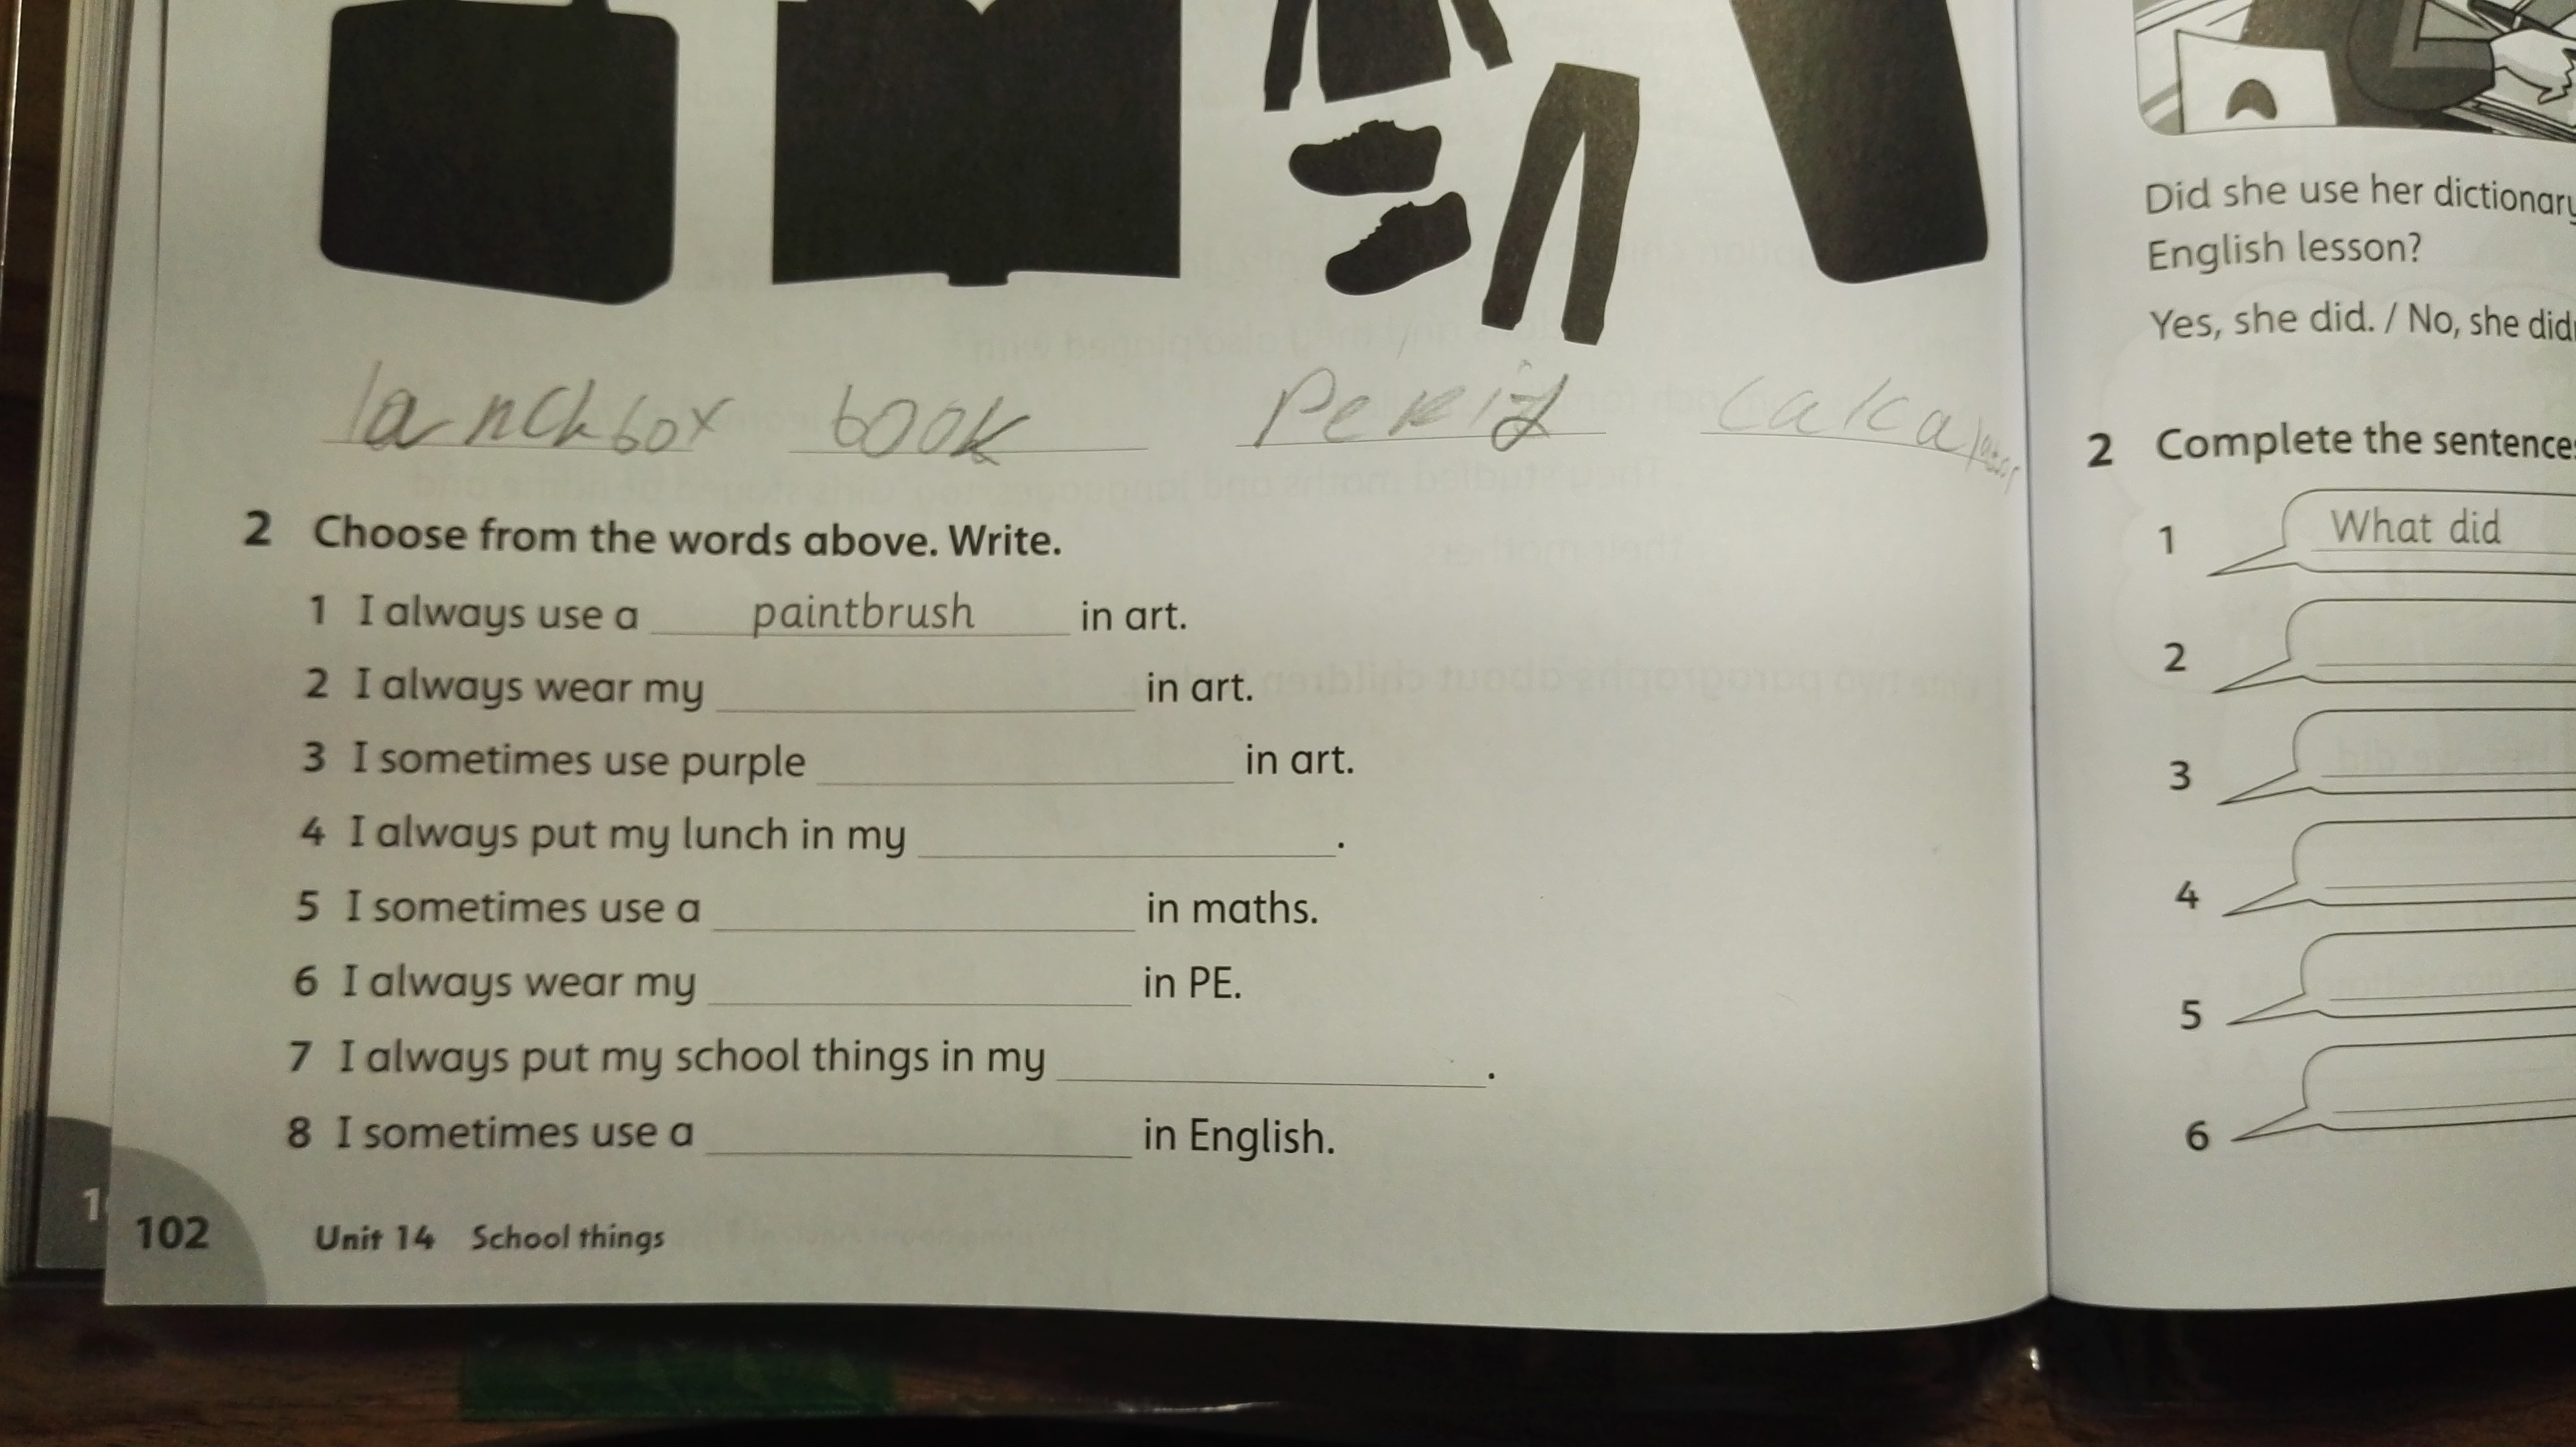 lanchbox book
2 Choose from the words above. Write.
1 I always use a paintbrush in art.
2 I always wear my in art.
3 I sometimes use purple in art.
4 I always put my lunch in my .
5 I sometimes use a in maths.
6 I always wear my in PE.
7 I always put my school things in my .
8 I sometimes use a in English.
102 Unit 14 School things
Did she use her dictionary
English lesson?
Yes, she did. / No, she
2 Complete the
1 What did
2
3
4
5
6